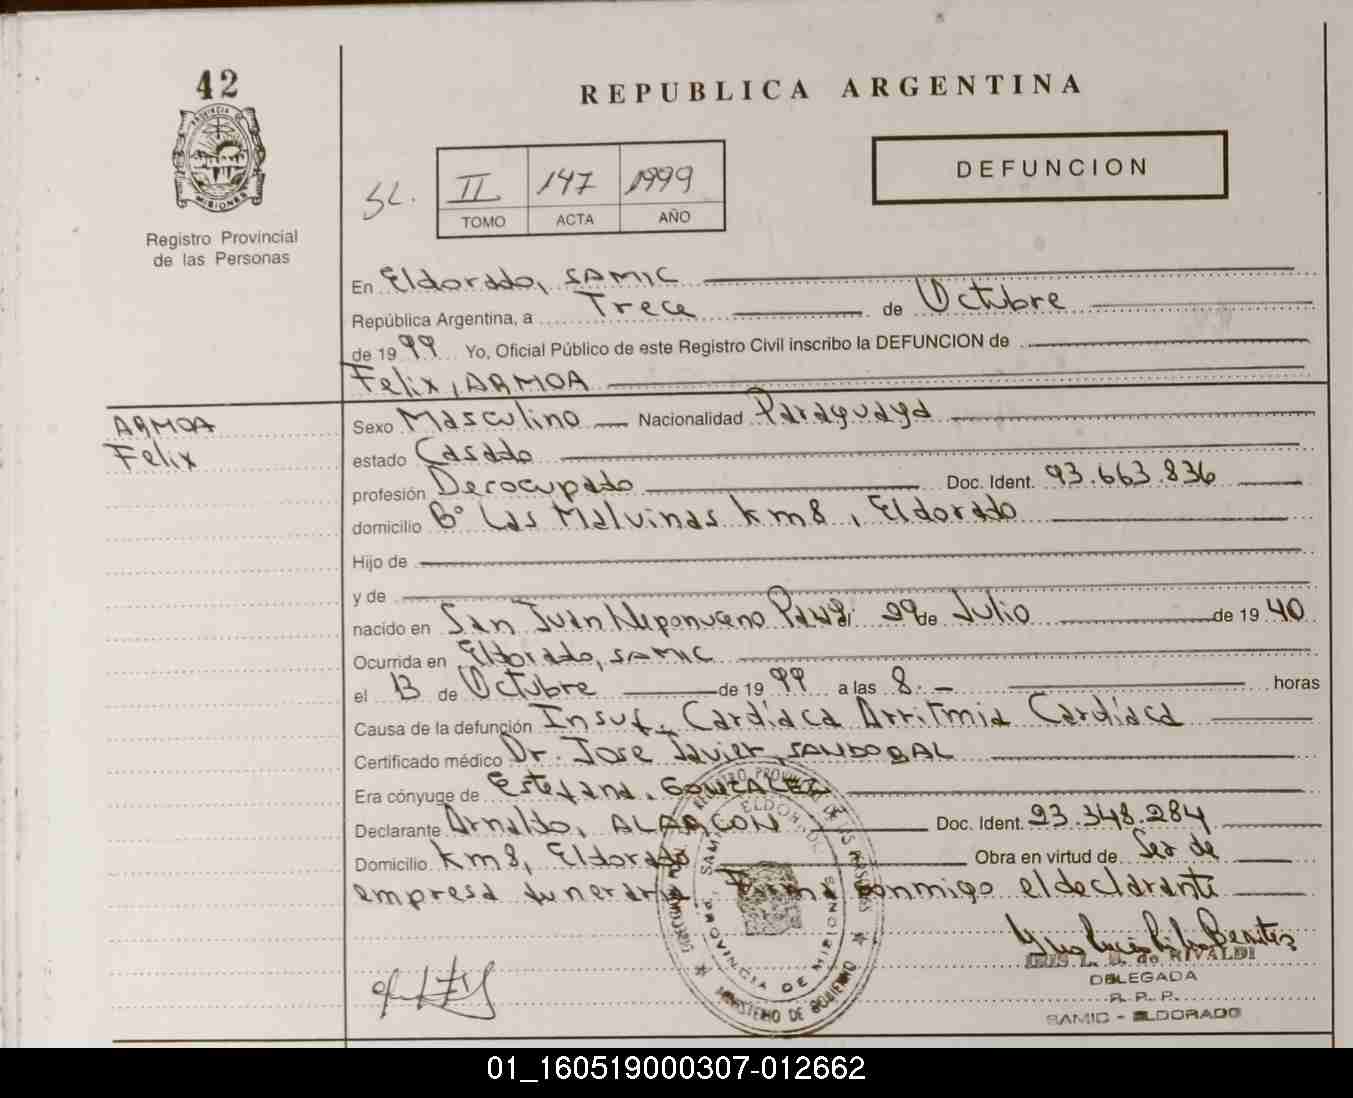 42
PROVINCIA DE
MISIONES
Registro Provincial
de las Personas
REPUBLICA ARGENTINA
DEFUNCION
SL.
II 147 1999
TOMO ACTA AÑO
En Eldorado, SAMIC
República Argentina, a Trece de Octubre
de 1999 Yo, Oficial Público de este Registro Civil inscribo la DEFUNCION de
Felix, ARMOA
ARMOA
Felix
Sexo Masculino Nacionalidad Paraguaya
estado Casado
profesión Desocupado Doc. Ident. 93.663.836
domicilio Bº Las Malvinas km8, Eldorado
Hijo de
y de
nacido en San Juan Nepomuceno 29 de Julio de 1940
Ocurrida en Eldorado, SAMIC
el 13 de Octubre de 1999 a las 8.- horas
Causa de la defunción Insuf. Cardíaca Arritmia Cardíaca
Certificado médico Dr. Jose Javier, SANDOBAL
Era cónyuge de Estefana, GONZALEZ
Declarante Arnaldo, ALARCON Doc. Ident. 23.348.284
Domicilio km8, Eldorado Obra en virtud de Ser de
empresa funeraria Firma conmigo el declarante
REGISTRO PROVINCIAL DE LAS PERSONAS
MINISTERIO DE GOBIERNO
ELDORADO
PROVINCIA DE MISIONES
de RIVALDI
DELEGADA
R. P. P.
SAMIC - ELDORADO
01_160519000307-012662